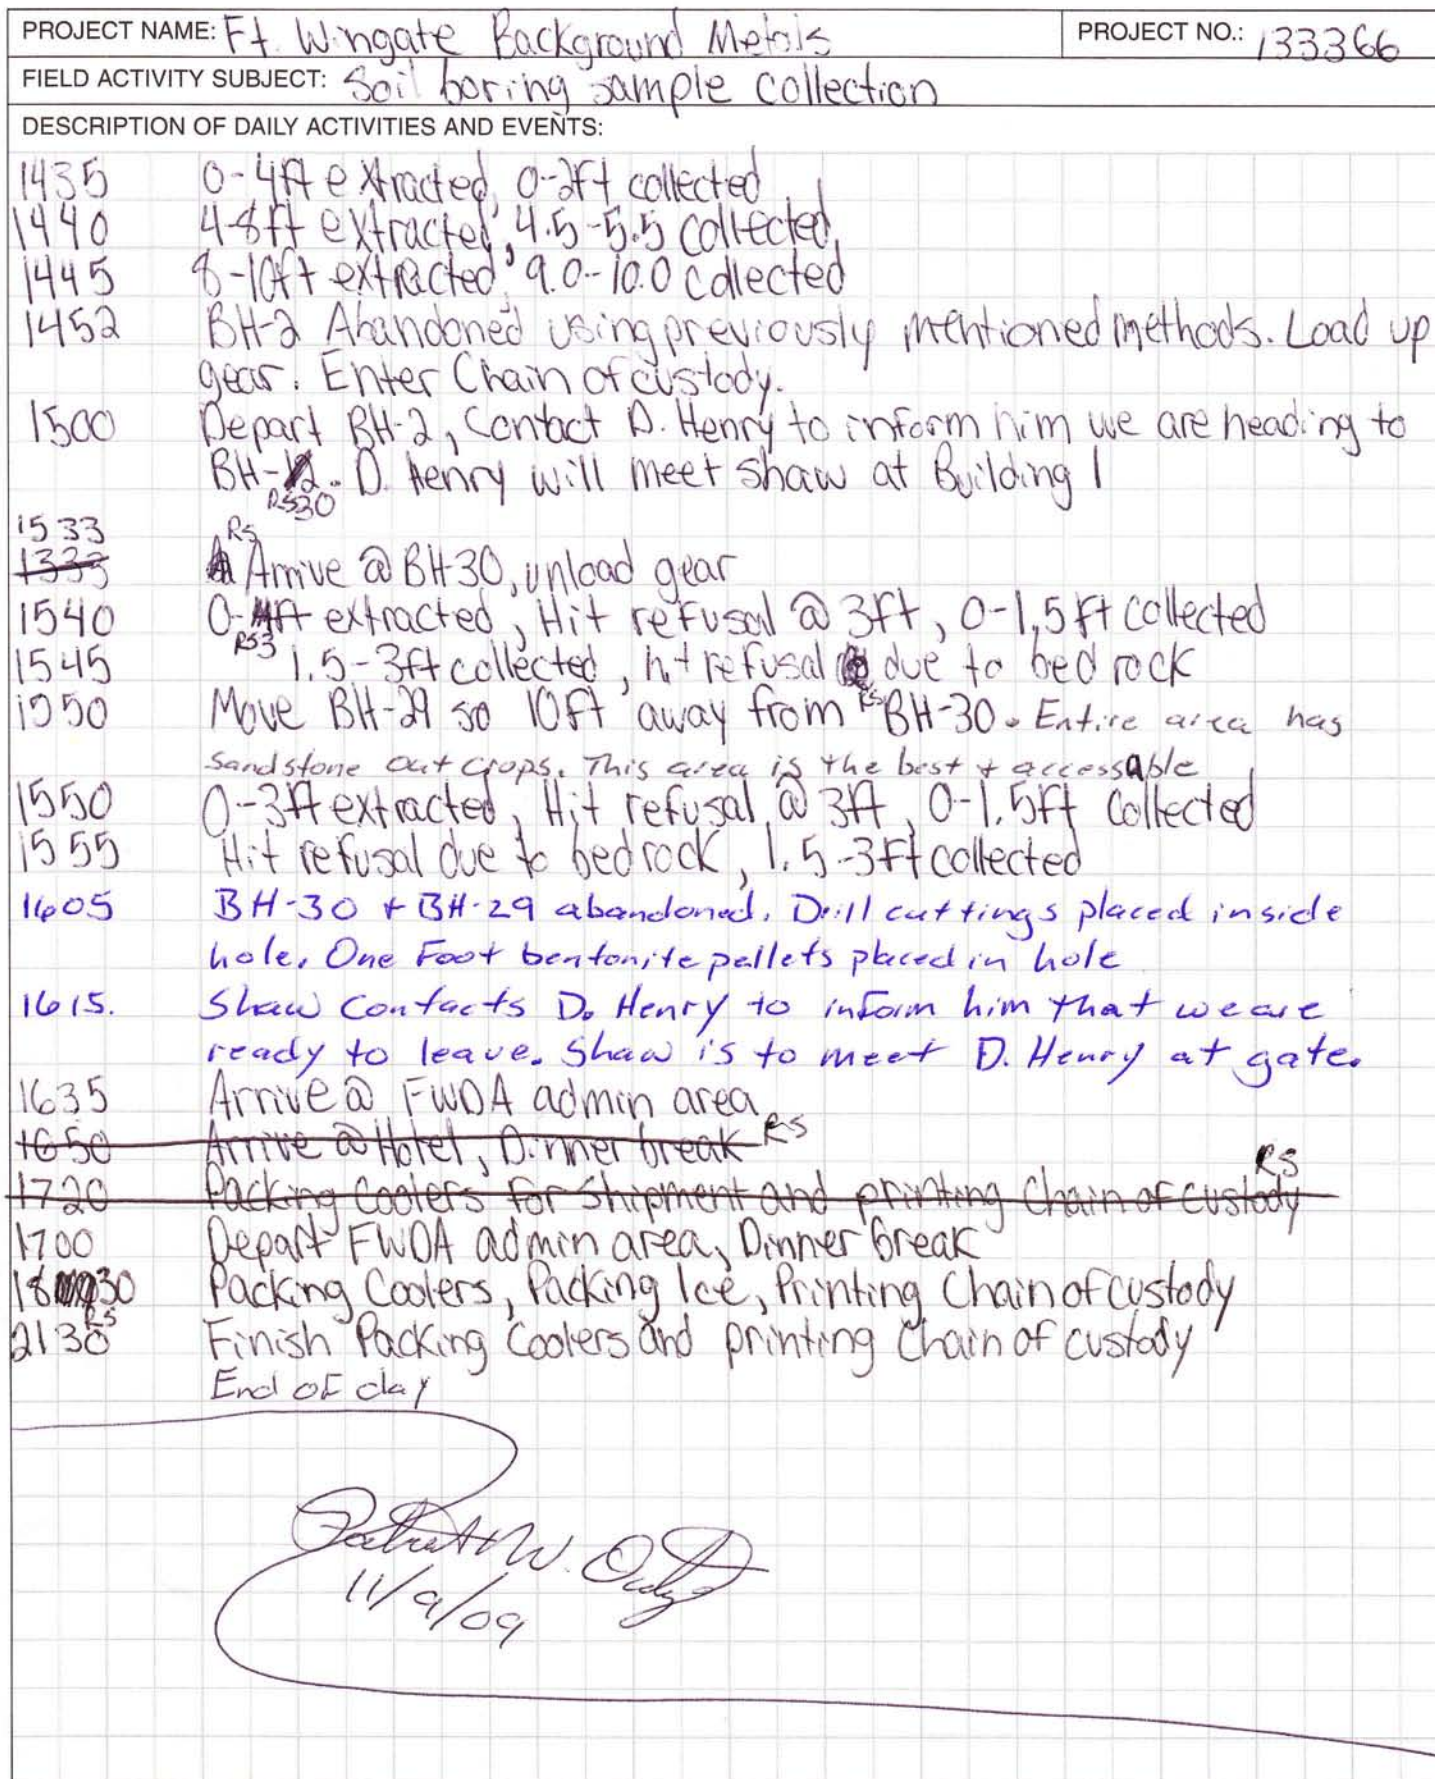 PROJECT NAME: Ft. Wingate Background Metals PROJECT NO.: 133366
FIELD ACTIVITY SUBJECT: Soil boring sample collection
DESCRIPTION OF DAILY ACTIVITIES AND EVENTS:
1435 0-4ft extracted, 0-2ft collected
1440 4-8ft extracted, 4.5-5.5 collected,
1445 8-10ft extracted, 9.0-10.0 collected
1452 BH-2 Abandoned using previously mentioned methods. Load up
gear. Enter Chain of custody.
1500 Depart BH-2, Contact D. Henry to inform him we are heading to
BH-12. D. Henry will meet Shaw at Building 1
RS 30
1533 RS
1333 Arrive @ BH-30, unload gear
1540 0-4ft extracted, Hit refusal @ 3ft, 0-1.5ft collected
RS 3
1545 1.5-3ft collected, hit refusal due to bed rock
RS
1550 Move BH-29 so 10ft away from BH-30. Entire area has
Sandstone out crops. This area is the best + accessable
1550 0-3ft extracted, Hit refusal @ 3ft, 0-1.5ft Collected
1555 Hit refusal due to bedrock, 1.5-3ft collected
1605 BH-30 + BH-29 abandoned. Drill cuttings placed inside
hole. One Foot bentonite pellets placed in hole
1615. Shaw Contacts D. Henry to inform him that we are
ready to leave. Shaw is to meet D. Henry at gate.
1635 Arrive @ FWDA admin area
1650 Arrive @ Hotel, Dinner break RS
RS
1720 Packing Coolers for Shipment and printing Chain of custody
1700 Depart FWDA admin area, Dinner break
1830 Packing Coolers, Packing Ice, Printing Chain of custody
RS
2130 Finish Packing Coolers and printing Chain of custody
End of day
11/9/09